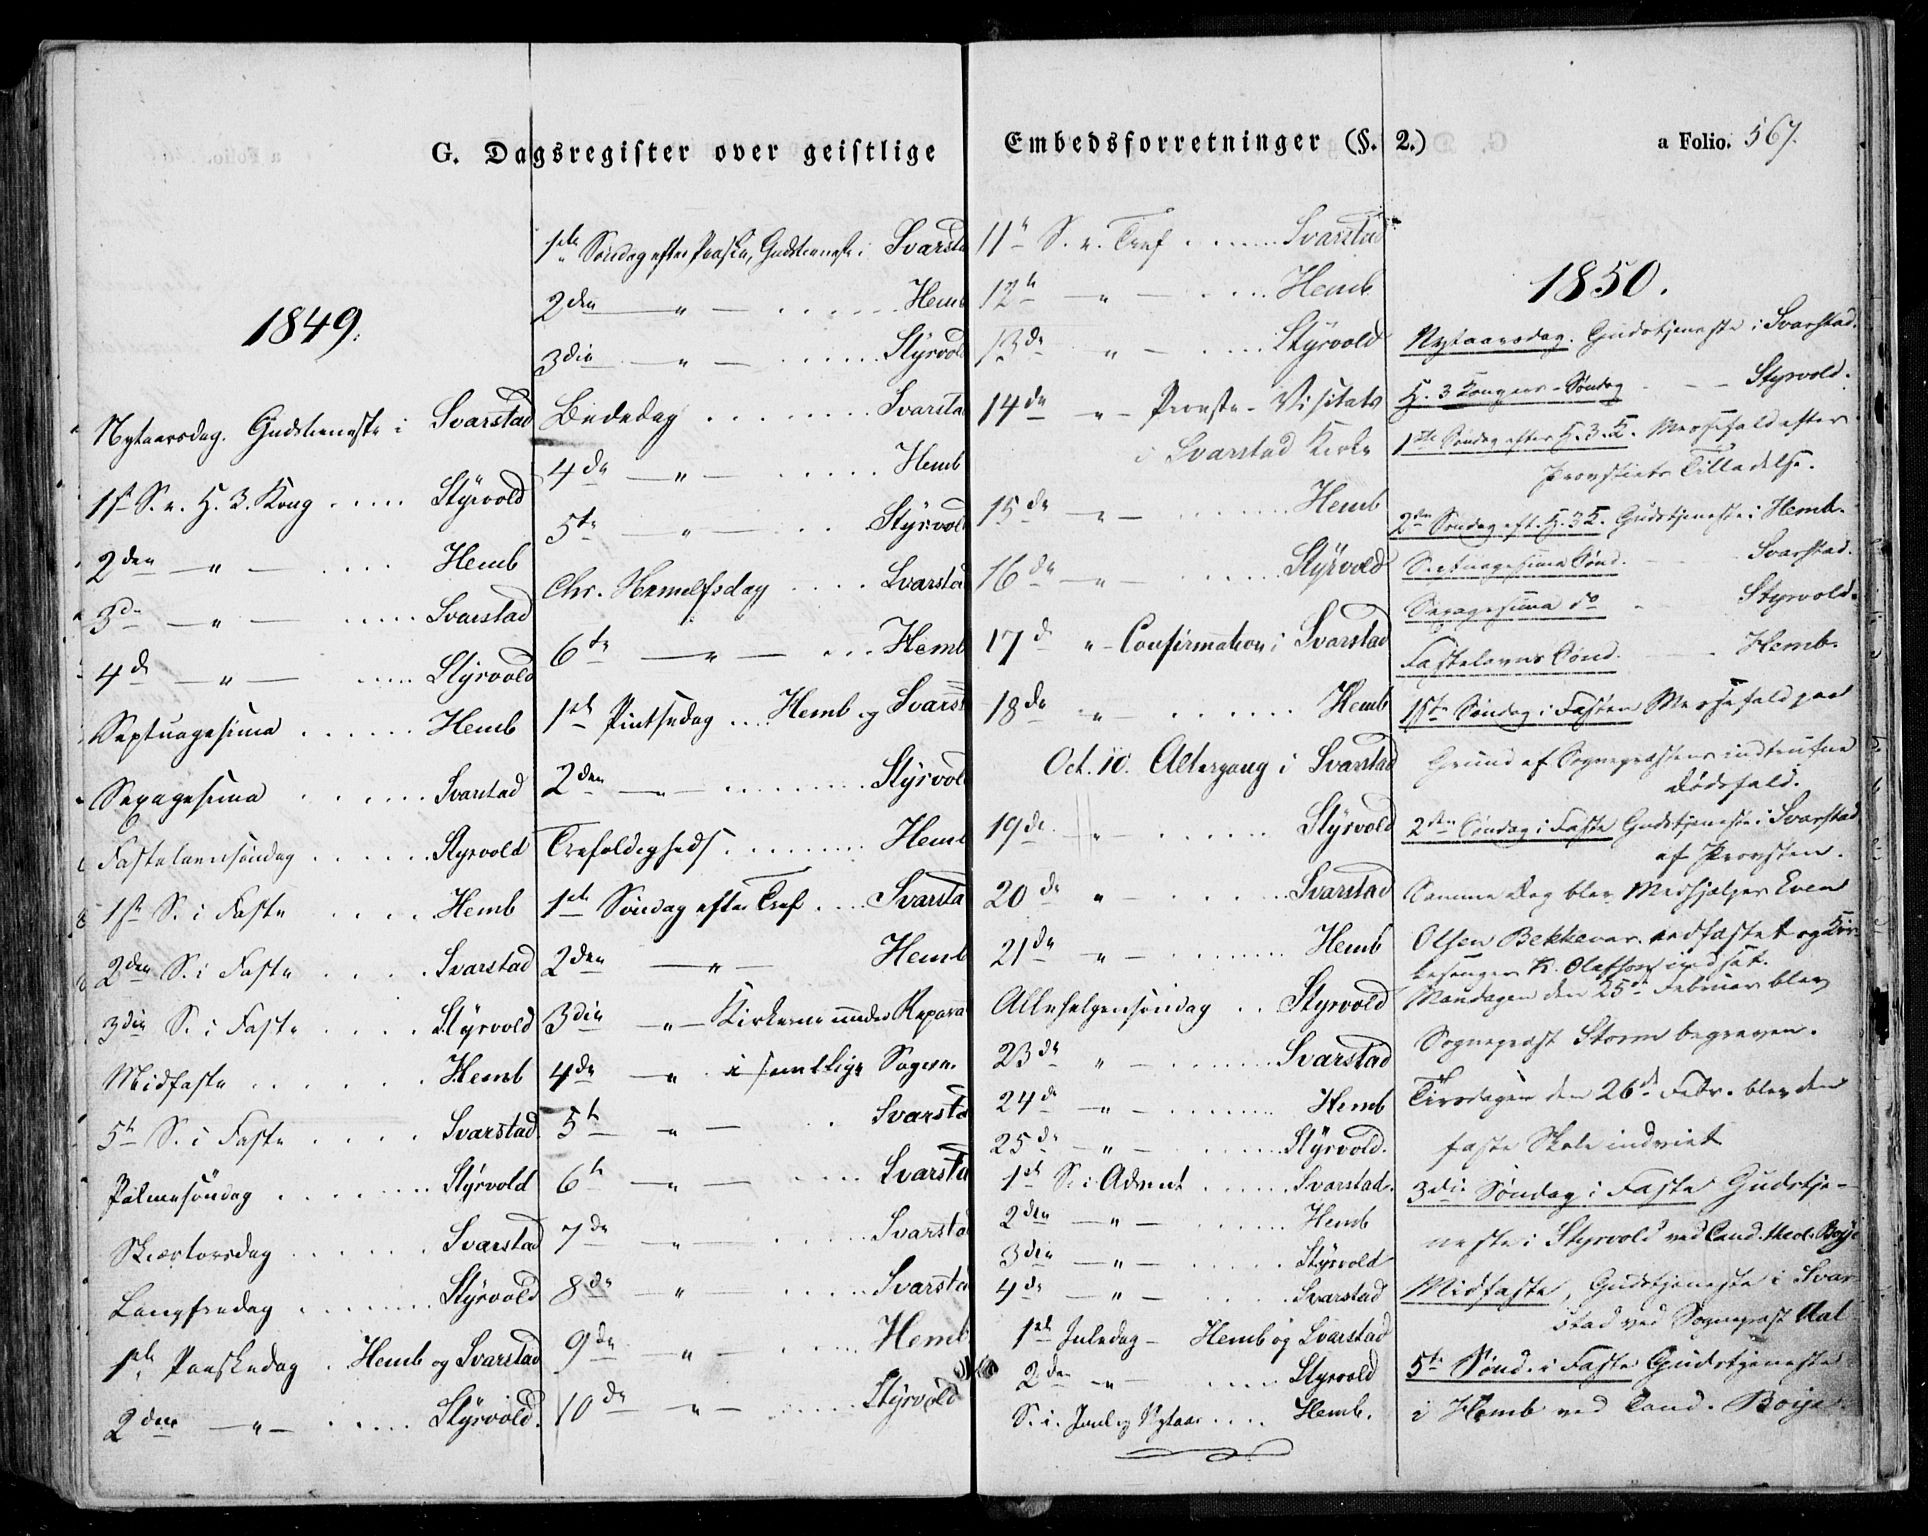 G. Dagsregister over geistlige Embedsforretninger (§. 2.) a Folio. 567.
1849.
Nytaarsdag. Gudstieneste i Svarstad
1ste S. e. H. 3. Kong ..... Styrvold
2den — „ — .... Hemb
3die — „ — ..... Svarstad
4de — „ — ..... Styrvold
Septuagesima ...... Hemb
Sexagesima ...... Svarstad
Fastelavnsøndag ...... Styrvold
1ste S. i Faste .... Hemb
2den S. i Faste .... Svarstad
3die S. i Faste .... Styrvold
Midfaste ...... Hemb
5te S. i Faste .... Svarstad
Palmesøndag ....... Styrvold
Skiærtorsdag ...... Svarstad
Langfredag ....... Styrvold
1ste Paaskedag . Hemb og Svarstad
2den — „ — .... Styrvold.
1ste Søndag efter Paaske, Gudstieneste i Svarsta
2den — „ — ...... Hemb
3die — „ — ..... Styrvold
Bededag ........ Svarsta
4de — „ — ..... Hemb
5te — „ — .. Styrvol
Chr. Himelfsdag .... Svarstad
6te — „ — ... Hemb
1ste Pintsedag ... Hemb og Svarst
2den — „ — ........ Styrvol
Trefoldigheds ........ Hemb
1ste Søndag efter Tref .... Svarsta
2den — „ — Hemb
3die „ — Kirkerne under Repara
4de — „ i samtlige Sogne.
5te — „ — . Svarsta
6te — „ — .... Svarsta
7de — „ — .... Svarstad
8de — „ — ..... Svarstad
9de — „ — ..... Hemb
10de — „ — ..... Styrvold
11te S. e. Tref ....... Svarstad
12te — „ — .... Hemb
13de „ — .... Styrvold
14de „ — Provste-Visitats
i Svarstad Kirke
15de — „ — ....... Hemb
16de — „ — ...... Styrvold
17de „ — Confirmation i Svarstad
18de „ ....... Hemb
Oct. 10. Altergang i Svarstad
19de — „ — ...... Styrvold
20de „ — ...... Svarstad
21de „ — ....... Hemb
Allehelgensøndag .. Styrvold
23de „ — ....... Svarstad
24de — „ — ....... Hemb
25de — „ — ....... Styrvold.
1ste S. i Advent ...... Svarstad.
2den — „ — ...... Hemb
3die — „ — ..... Styrvold
4de — „ — .... Svarstad
1ste Juledag — Hemb og Svarstad
2den — „ — ..... Styrvold
S. i. Juul og Nytaar .... Hemb.
1850.
Nytaarsdag. Gudstjeneste i Svarstad.
H. 3 Kongers-Søndag - - - Styrvold.
1ste Søndag efter H. 3. K. Messefald efter
Provstiets Tilladelse.
2den Søndag eft. H. 3 K. Gudstjeneste i Hemb.
Septuagesima Sønd. - - Svarstad.
Sexagesima do - Styrvold.
Fastelavns Sønd. - - Hemb.
1ste Søndag i Fasten Messefald paa
Grund af Sognepræstens indtrufne
Dødsfald.
2den Søndag i Faste Gudstjeneste i Svarstad
af Provsten.
Samme Dag blev Medhjælper Even
Olsen Bekkevar. edfæstet og Kir-
kesanger K. Olafsen indsat.
Mandagen den 25de Februar blev
Sognepræst Storm begraven.
Tirsdagen den 26de Febr. blev den
faste Skole indviet
3die Søndag i Faste Gudstje-
neste i Styrvold ved Cand. theol. Boije
Midfaste, Gudstjeneste i Svar-
stad ved Sognepræst Aal
5te Sønd. i Faste Gudstjeneste
i Hemb ved Cand. Boije